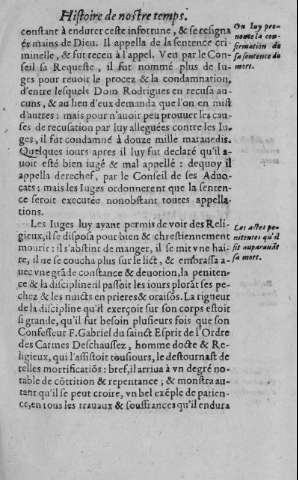 Histoire de nostre temps.
constant à endurer ceste infortune, & se resigna
ez mains de Dieu. Il appella de la sentence cri-
minelle, & fut receu à l'appel. Veu par le Con-
seil sa Requeste, il fut nommé plus de Iu-
ges pour reuoir le procez & la condamnation,
d'entre lesquels Dom Rodrigues en recusa au-
cuns, & au lieu d'eux demanda que l'on en mist
d'autres: mais pour n'auoir peu prouuer les cau-
ses de recusation par luy alleguées contre les Iu-
ges, il fut condamné à douze mille marauedis.
Quelques iours apres il luy fut declaré qu'il a-
uoit esté bien iugé & mal appellé: dequoy il
appella derechef, par le Conseil de ses Aduo-
cats; mais les Iuges ordonnerent que la senten-
ce seroit executée nonobstant toutes appella-
tions.
Les Iuges luy ayant permis de voir des Reli-
gieux, il se disposa pour bien & chrestiennement
mourir: il s'abstint de manger, il se mit vne hai-
re, il ne se coucha plus sur le lict, & embrassa a-
uec vne grãde constance & deuotion, la peniten-
ce & la discipline: il passoit les iours plorãt ses pe-
chez & les nuicts en prieres & oraisõs. La rigueur
de la discipline qu'il exerçoit sur son corps estoit
si grande, qu'il fut besoin plusieurs fois que son
Confesseur F. Gabriel du sainct Esprit de l'Ordre
des Carmes Deschaussez, homme docte & Re-
ligieux, qui l'assistoit tousiours, le destournast de
telles mortificatiõs: bref, il arriua à vn degré no-
table de cõtritiõ & repentance, & monstra au-
tant qu'il se peut croire, vn bel exẽple de patien-
ce, en tous les trauaux & souffrances qu'il endura
On luy pro-
nonce la con-
firmation de
sa sentence de
mort.
Les actes pe-
nitentes qu'il
fit auparauãt
sa mort.